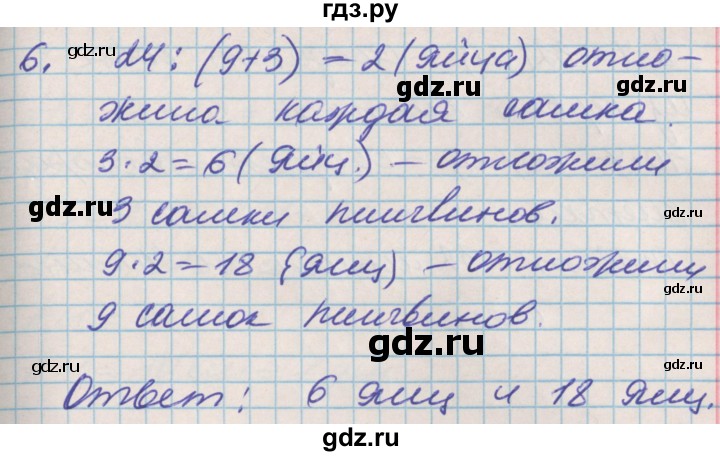 гдз.ру
6. 24 : (9+3) = 2 (яйца) отло-
gdz.ru gdz.ru
жила каждая самка.
3·2=6 (яиц.) – отложили
gdz.ru
3 самки пингвинов.
gdz.ru
9·2=18 (яиц) – отложили
gdz.ru
9 самок пингвинов.
gdz.ru
gdz.ru
Ответ: 6 яиц и 18 яиц.
gdz.ru
gdz.ru